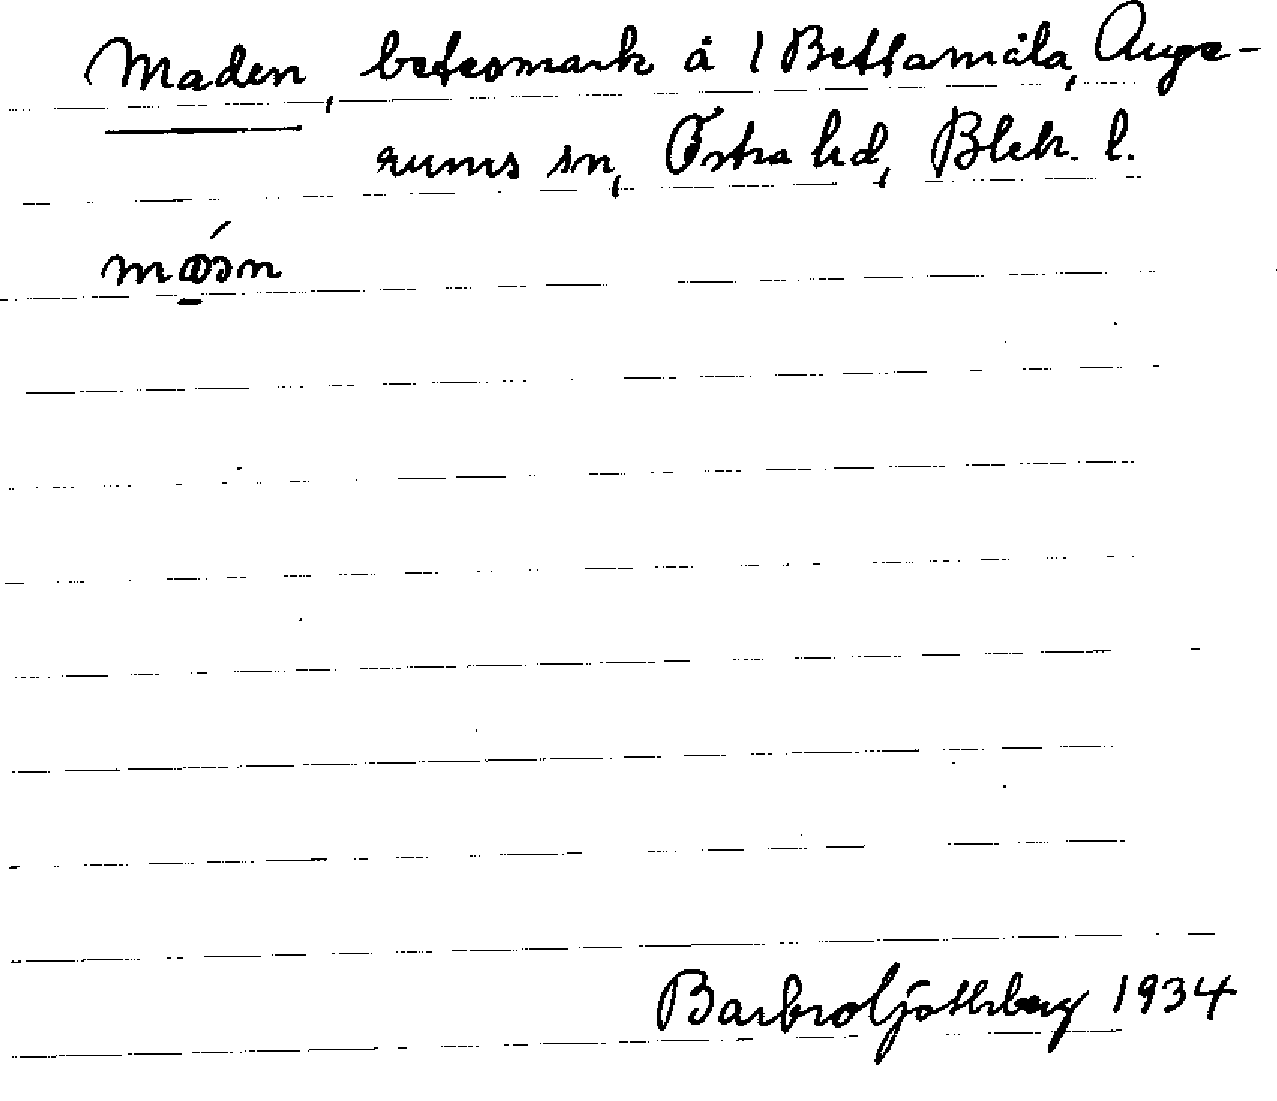 Maden, betesmark å 1 Bettamåla, Auge-
rums sn, Östra hd, Blek. l.
Barbro 1934